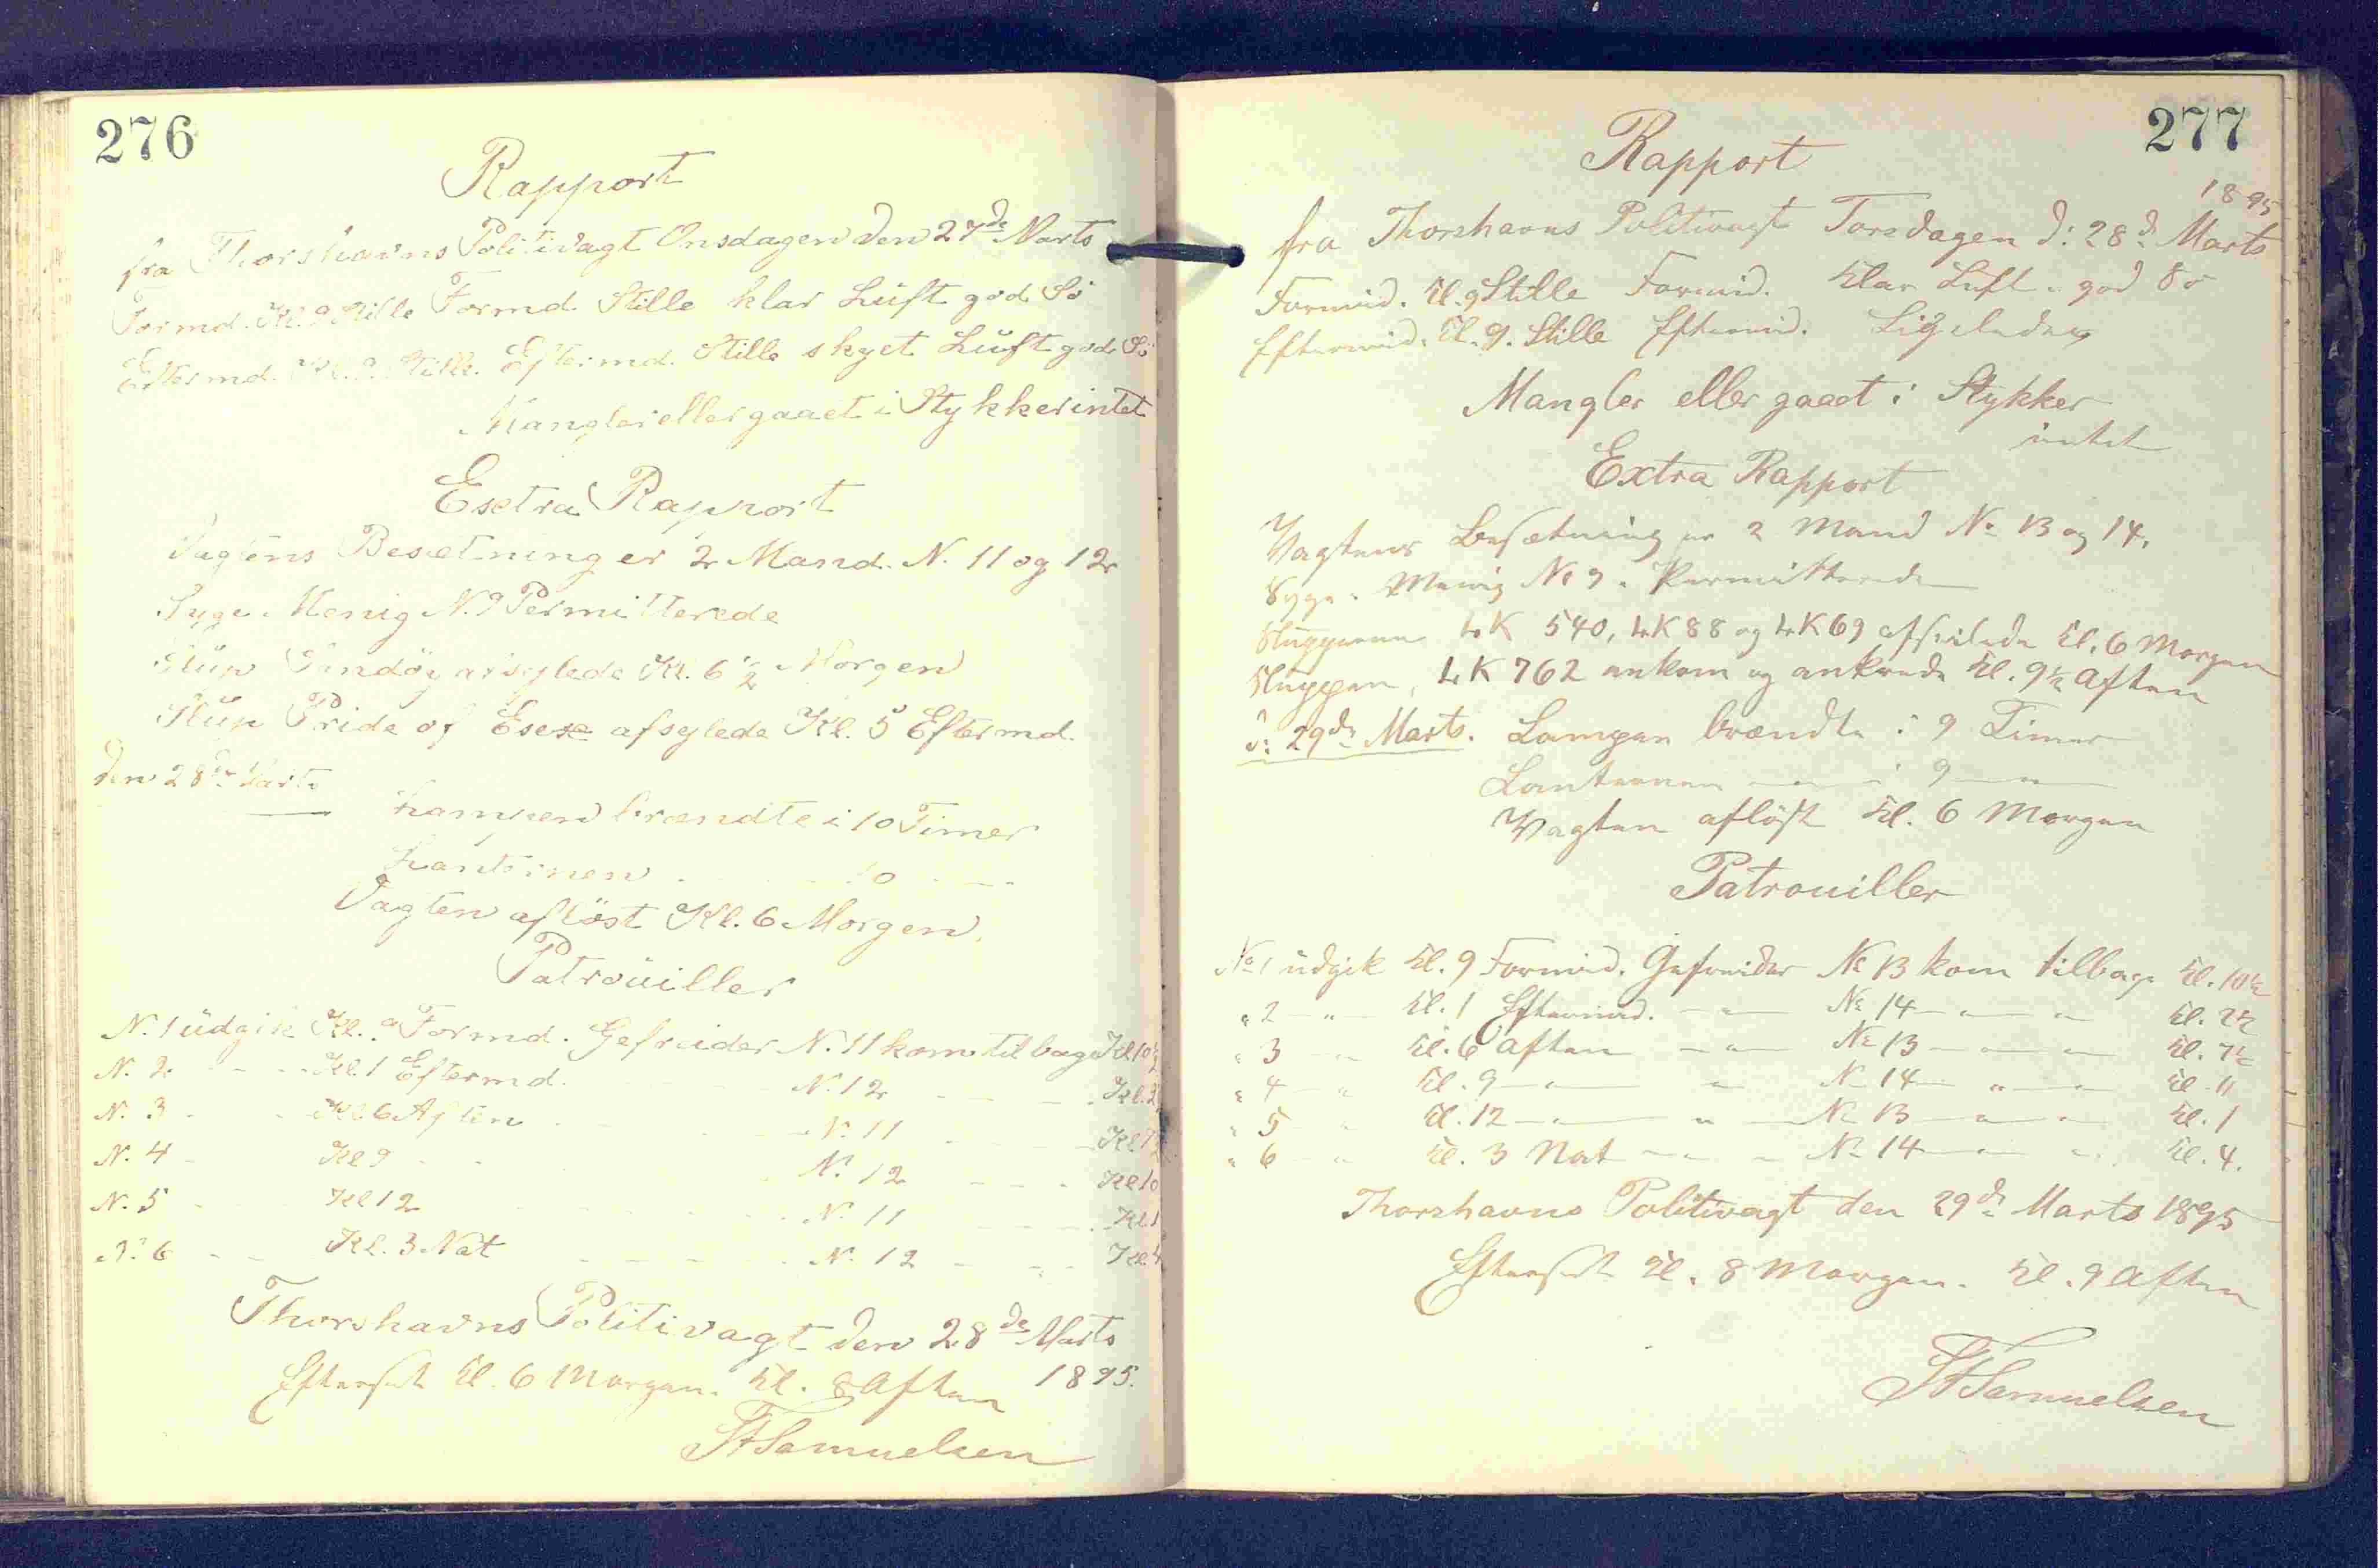 276
Rapport
fra Thorshavns Politivagt Onsdagen den 27de Marts
Formd. Kl. 9 Stille Formd. Stille klar Lüft god Sö
Eftermd. Kl. 9. Stille. Eftermd. Stille skyet Lüft god Sö
Mangler eller gaaet i Stykker intet
Esctra Rapport
Vagtens Besætning er 2 Mand. N. 11 og 12
Syge Menig N. 9 Permitterede
Slüp Sandöy afseylede Kl. 6 1/2 Morgen
Slüp Pride of Esese afsylede Kl. 5 Eftermd.
den 28de Marts
Lampen brændte i 10 Timer
Lanternen - - - 10 - -
Vagten aflöst Kl. 6 Morgen.
Patroüiller
N. 1 üdgik Kl. 9 Formd. Gefreider N. 11 kom tilbage Kl 10 1/2
N. 2 - - - Kl. 1 Eftermd. - - - N. 12 - - - Kl. 2
N. 3 - - Kl. 6 Aften - - - N. 11 - - - Kl. 7 1/2
N. 4 - Kl 9 - - - N. 12 - - - Kl 10
N. 5 - Kl 12 - - - N. 11 - - - Kl. 1
N. 6 - - Kl. 3 Nat - - - N. 12 - - - Kl 4
Thorshavns Politivagt den 28de Marts
1895.
Efterset Kl. 6 Morgen. Kl. 8 Aften
Samuelsen
277
Rapport
1895
fra Thorshavns Politivagt Torsdagen d: 28d. Marts
Formid. Kl. 9 Stille Formid. Klar Luft. god Sö
Eftermid. Kl. 9. Stille Eftermid. Ligeledes
Mangler eller gaaet i Stykker
intet
Extra Rapport
Vagtens Besætning er 2 Mand No 13 og 14.
Syge. Menig No 9. Permitterede
Slupperne LK 540, LK 88 og LK 69 afseilede Kl. 6 Morgen
Sluppen, LK 762 ankom og ankrede Kl. 9 1/2 Aften
d: 29de Marts. Lampen brændte i 9 Timer
Lanternen — " — i 9 — " —
Vagten aflöst Kl. 6 Morgen
Patrouiller
No 1 üdgik Kl. 9 Formid. Gefreider No 13 kom tilbage Kl. 10 1/2
" 2 — " — Kl. 1 Eftermid. — " — No 14 — " — " — Kl. 2 1/2
" 3 — " Kl. 6 Aften — " — No 13 — " — " — Kl. 7 1/2
" 4 — " Kl. 9 — " — " No 14 — " — " — Kl. 11
" 5 " Kl. 12 — " — " — No 13 — " — " — Kl. 1
" 6 — " Kl. 3 Nat — " — No 14 — " — " Kl. 4.
Thorshavns Politivagt den 29de Marts 1895
Efterset Kl. 8 Morgen. Kl. 9 Aften
Samuelsen